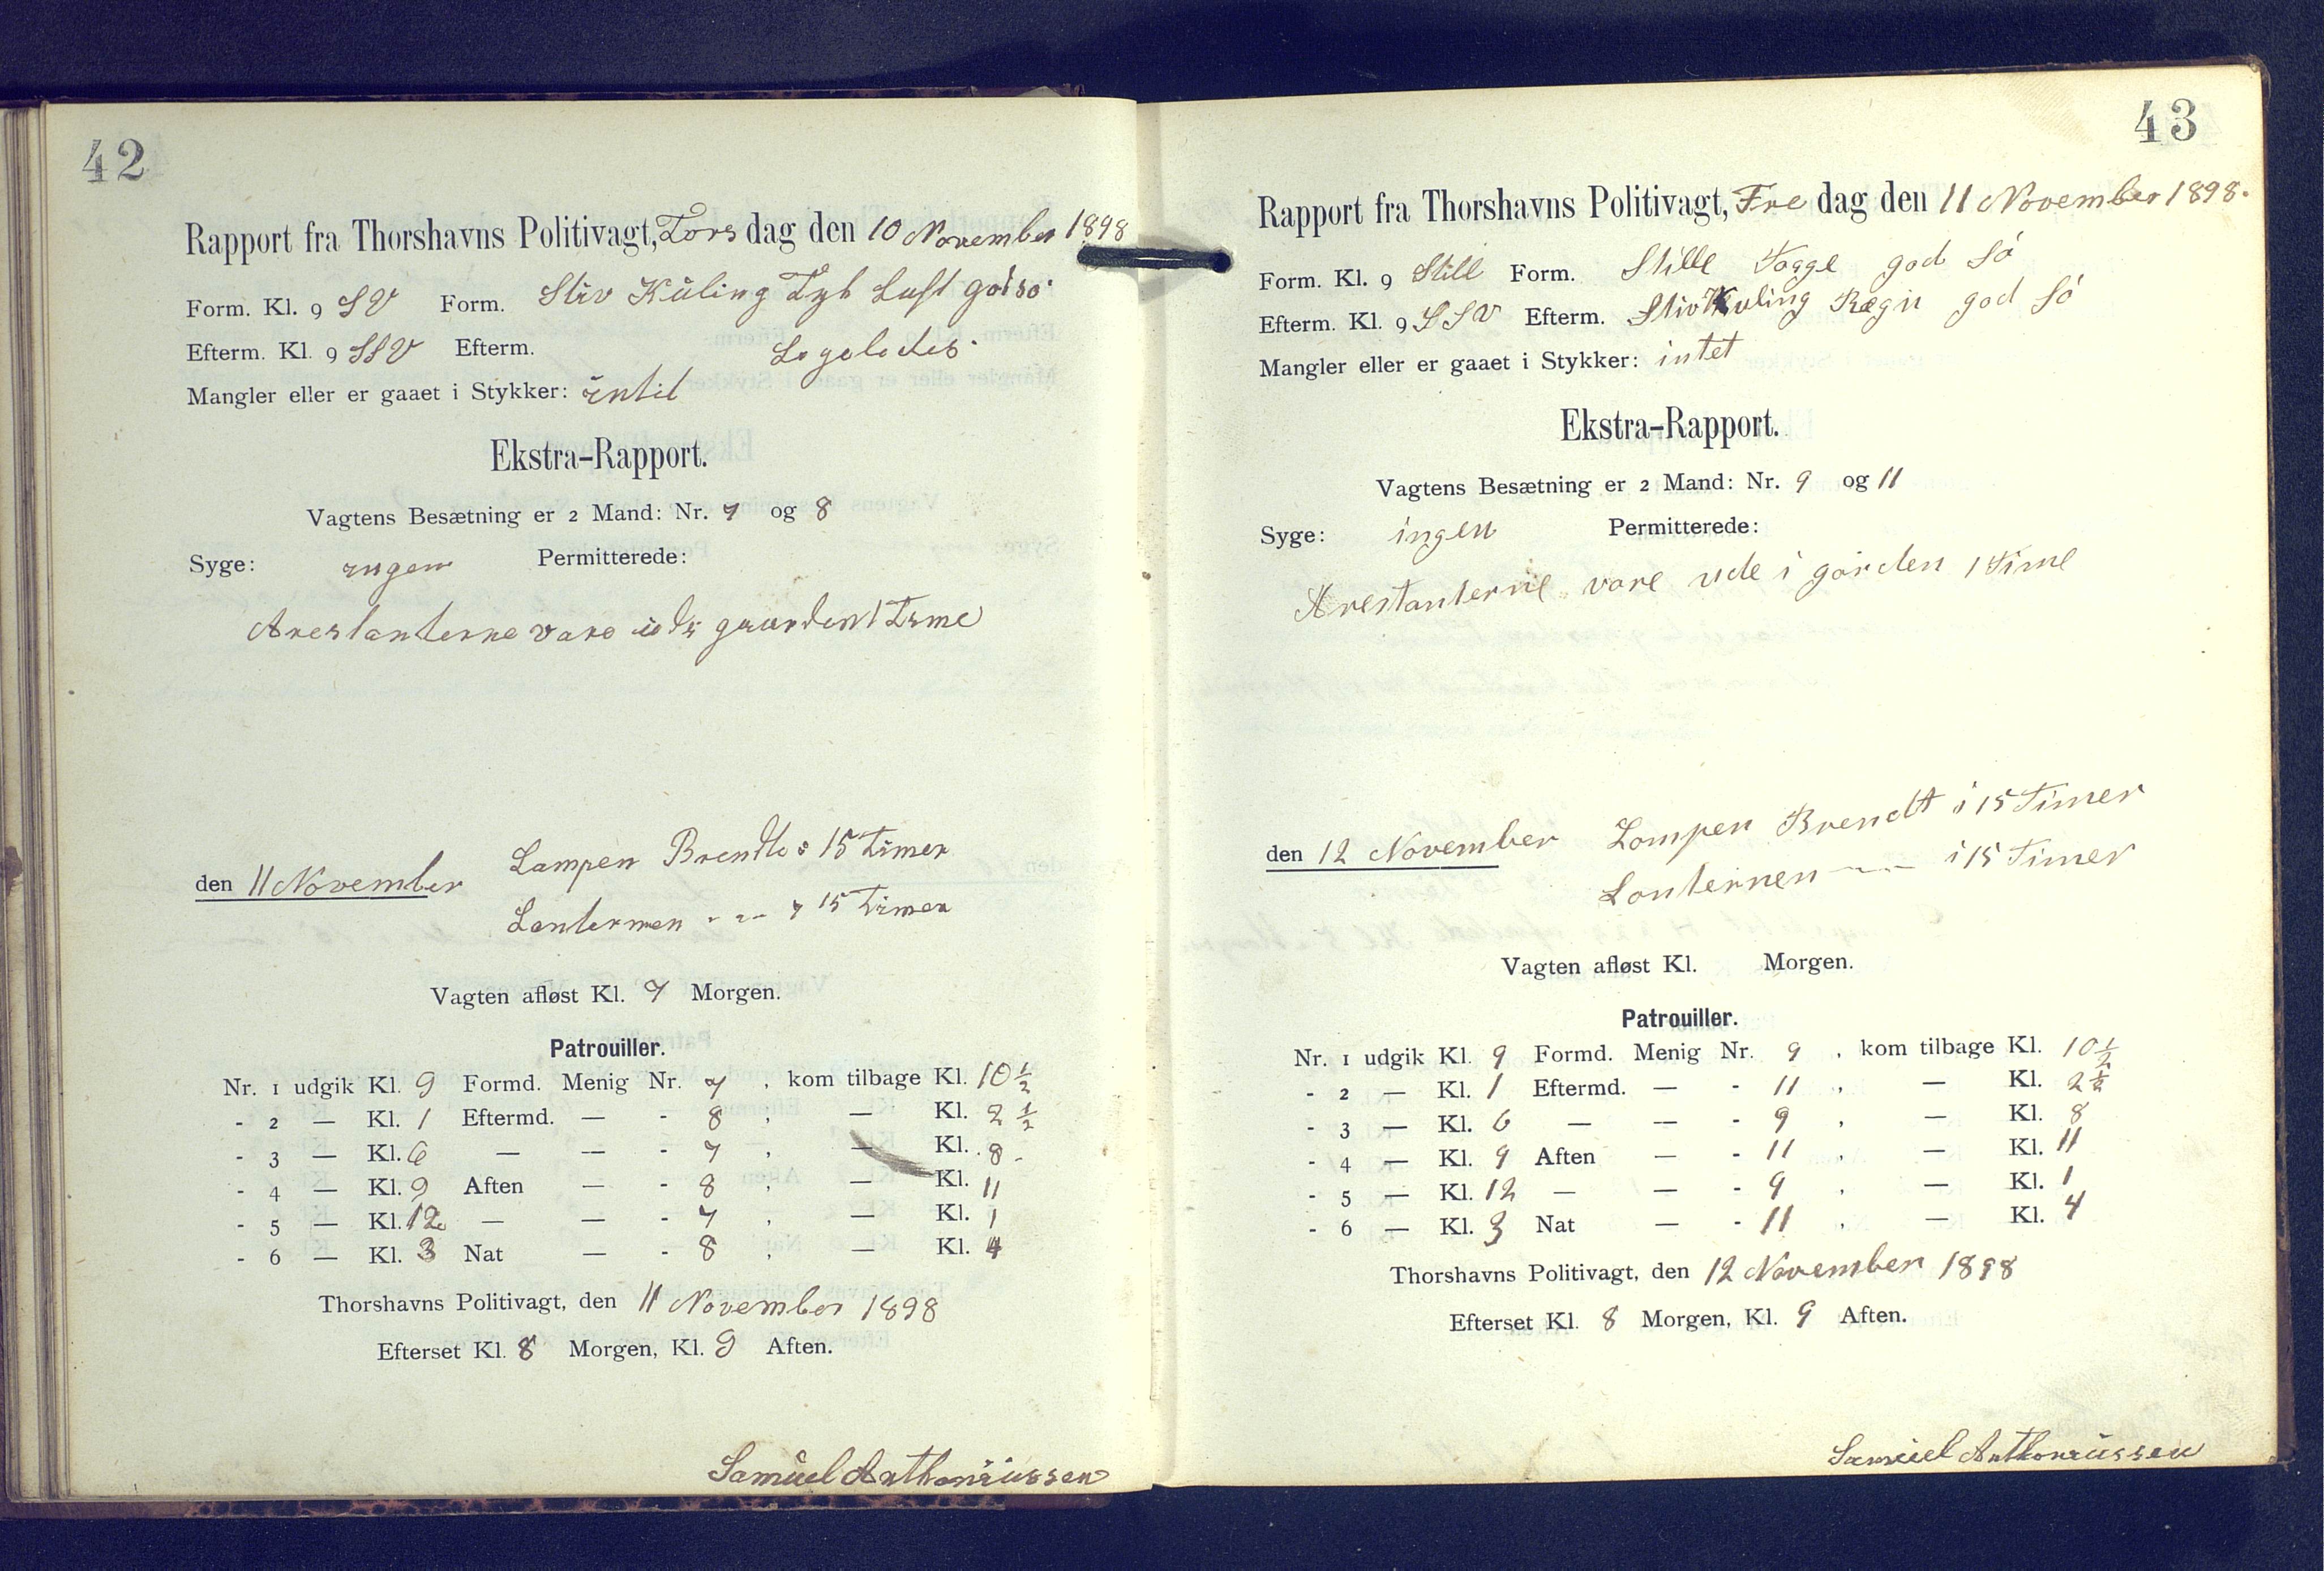 42
Rapport fra Thorshavns Politivagt, Tors dag den 10 November 1898
Form. Kl. 9 SV Form. Stiv Kuling Tyk Luft god so
Efterm. Kl. 9 SSV Efterm. Ligeledes
Mangler eller er gaaet i Stykker: intet
Ekstra-Rapport.
Vagtens Besætning er 2 Mand: Nr. 7 og 8
Syge: ingen Permitterede:
Arestanterne vare ude i gaarden 1 Time
den 11 November Lampen Brendte i 15 Timer
Lanternen - - - i 15 Timer
Vagten afløst Kl. 7 Morgen.
Patrouiller.
Nr. 1 udgik Kl. 9 Formd. Menig Nr. 7, kom tilbage Kl. 10 1/2
- 2 — Kl. 1 Eftermd. — - 8, — Kl. 2 1/2
- 3 — Kl. 6 — — - 7, — Kl. 8
- 4 — Kl. 9 Aften — - 8, — Kl. 11
- 5 — Kl. 12 — — - 7, — Kl. 1
- 6 — Kl. 3 Nat — - 8, — Kl. 4
Thorshavns Politivagt, den 11 November 1898
Efterset Kl. 8 Morgen, Kl. 9 Aften.
Samuel Anthoniussen
43
Rapport fra Thorshavns Politivagt, Fre dag den 11 November 1898.
Form. Kl. 9 Still Form. Stille Togge god Só
Efterm. Kl. 9 SSV Efterm. Stiv Kuling Rægn god Só
Mangler eller er gaaet i Stykker: intet
Ekstra-Rapport.
Vagtens Besætning er 2 Mand: Nr. 9 og 11
Syge: ingen Permitterede:
Arestanterne vare ude i gården 1 Time
den 12 November Lampen Brendt i 15 Timer
Lanternen - - - i 15 Timer
Vagten afløst Kl. Morgen.
Patrouiller.
Nr. 1 udgik Kl. 9 Formd. Menig Nr. 9, kom tilbage Kl. 10 1/2
- 2 — Kl. 1 Eftermd. — - 11, — Kl. 2 1/2
- 3 — Kl. 6 — — - 9, — Kl. 8
- 4 — Kl. 9 Aften — - 11, — Kl. 11
- 5 — Kl. 12 — — - 9, — Kl. 1
- 6 — Kl. 3 Nat — - 11, — Kl. 4
Thorshavns Politivagt, den 12 November 1898
Efterset Kl. 8 Morgen, Kl. 9 Aften.
Samuel Anthoniussen